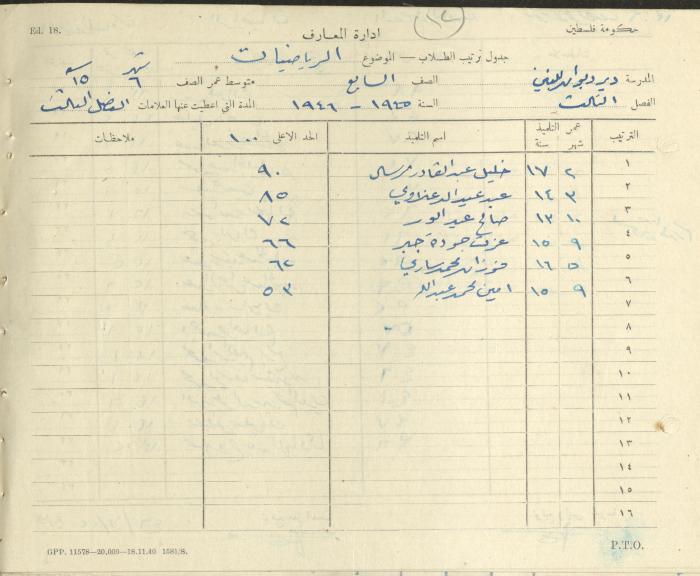 Ed. 18.
١٢
ادارة المعارف
حكومة فلسطين
جدول ترتيب الطلاب — الموضوع الرياضيات
المدرسة دير ديوان
الصف السابع متوسط عمر الصف شهر ٦ سنة ١٥
الفصل الثالث السنة ١٩٤٥ – ١٩٤٦ المدة التي اعطيت عنها العلامات الفصل الثالث
الترتيب عمر التلميذ شهر سنة اسم التلميذ الحد الاعلى ١٠٠ ملاحظات
١ ٢ ١٧ خليل عبد القادر ٩٠
٢ ٣ ١٤ عبد ٨٥
٣ ١٠ ١٣ صالح عبد ٧٢
٤ ٩ ١٥ عزت حمودة جبر ٦٦
٥ ٥ ١٦ فوزان محمد ٦٢
٦ ٩ ١٥ امين محمد عبدالله ٥٣
٧
٨
٩
١٠
١١
١٢
١٣
١٤
١٥
١٦
GPP. 11578—20,000—18.11.40 1581/S.
P.T.O.